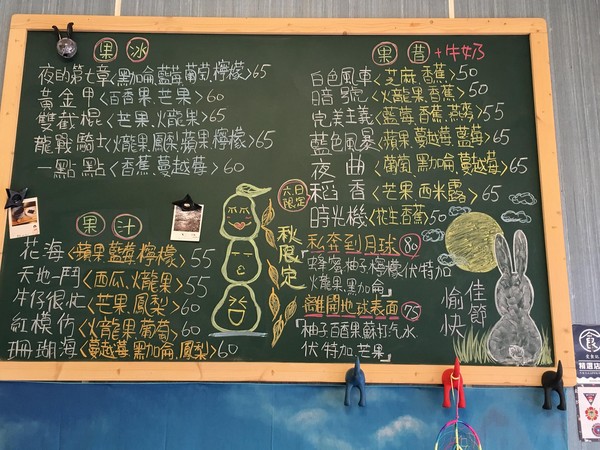 果冰
夜的第七章<黑加侖,藍莓,葡萄,檸檬>65
黃金甲<百香果,芒果>60
雙截棍<芒果,火龍果>65
龍戰騎士<火龍果,鳳梨,蘋果,檸檬>65
一點點<香蕉,蔓越莓>60
果汁
花海<蘋果,藍莓,檸檬>55
天地一鬥<西瓜,火龍果>55
牛仔很忙<芒果,鳳梨>60
紅模仿<火龍果,葡萄>60
珊瑚海<蔓越莓,黑加侖,鳳梨>60
六日限定
秋限定
果昔+牛奶
白色風車<芝麻,香蕉>50
暗號<火龍果,香蕉>50
完美主義<藍莓,香蕉,燕麥>55
藍色風暴<蘋果,蔓越莓,藍莓>65
夜曲<葡萄,黑加侖,蔓越莓>65
稻香<芒果,西米露>65
時光機<花生,香蕉>50
私奔到月球 80
蜂蜜,柚子,檸檬,伏特加
火龍果,黑加侖
離開地球表面 75
柚子,百香果,蘇打气水
伏特加,芒果
佳節
愉快
食
精選店